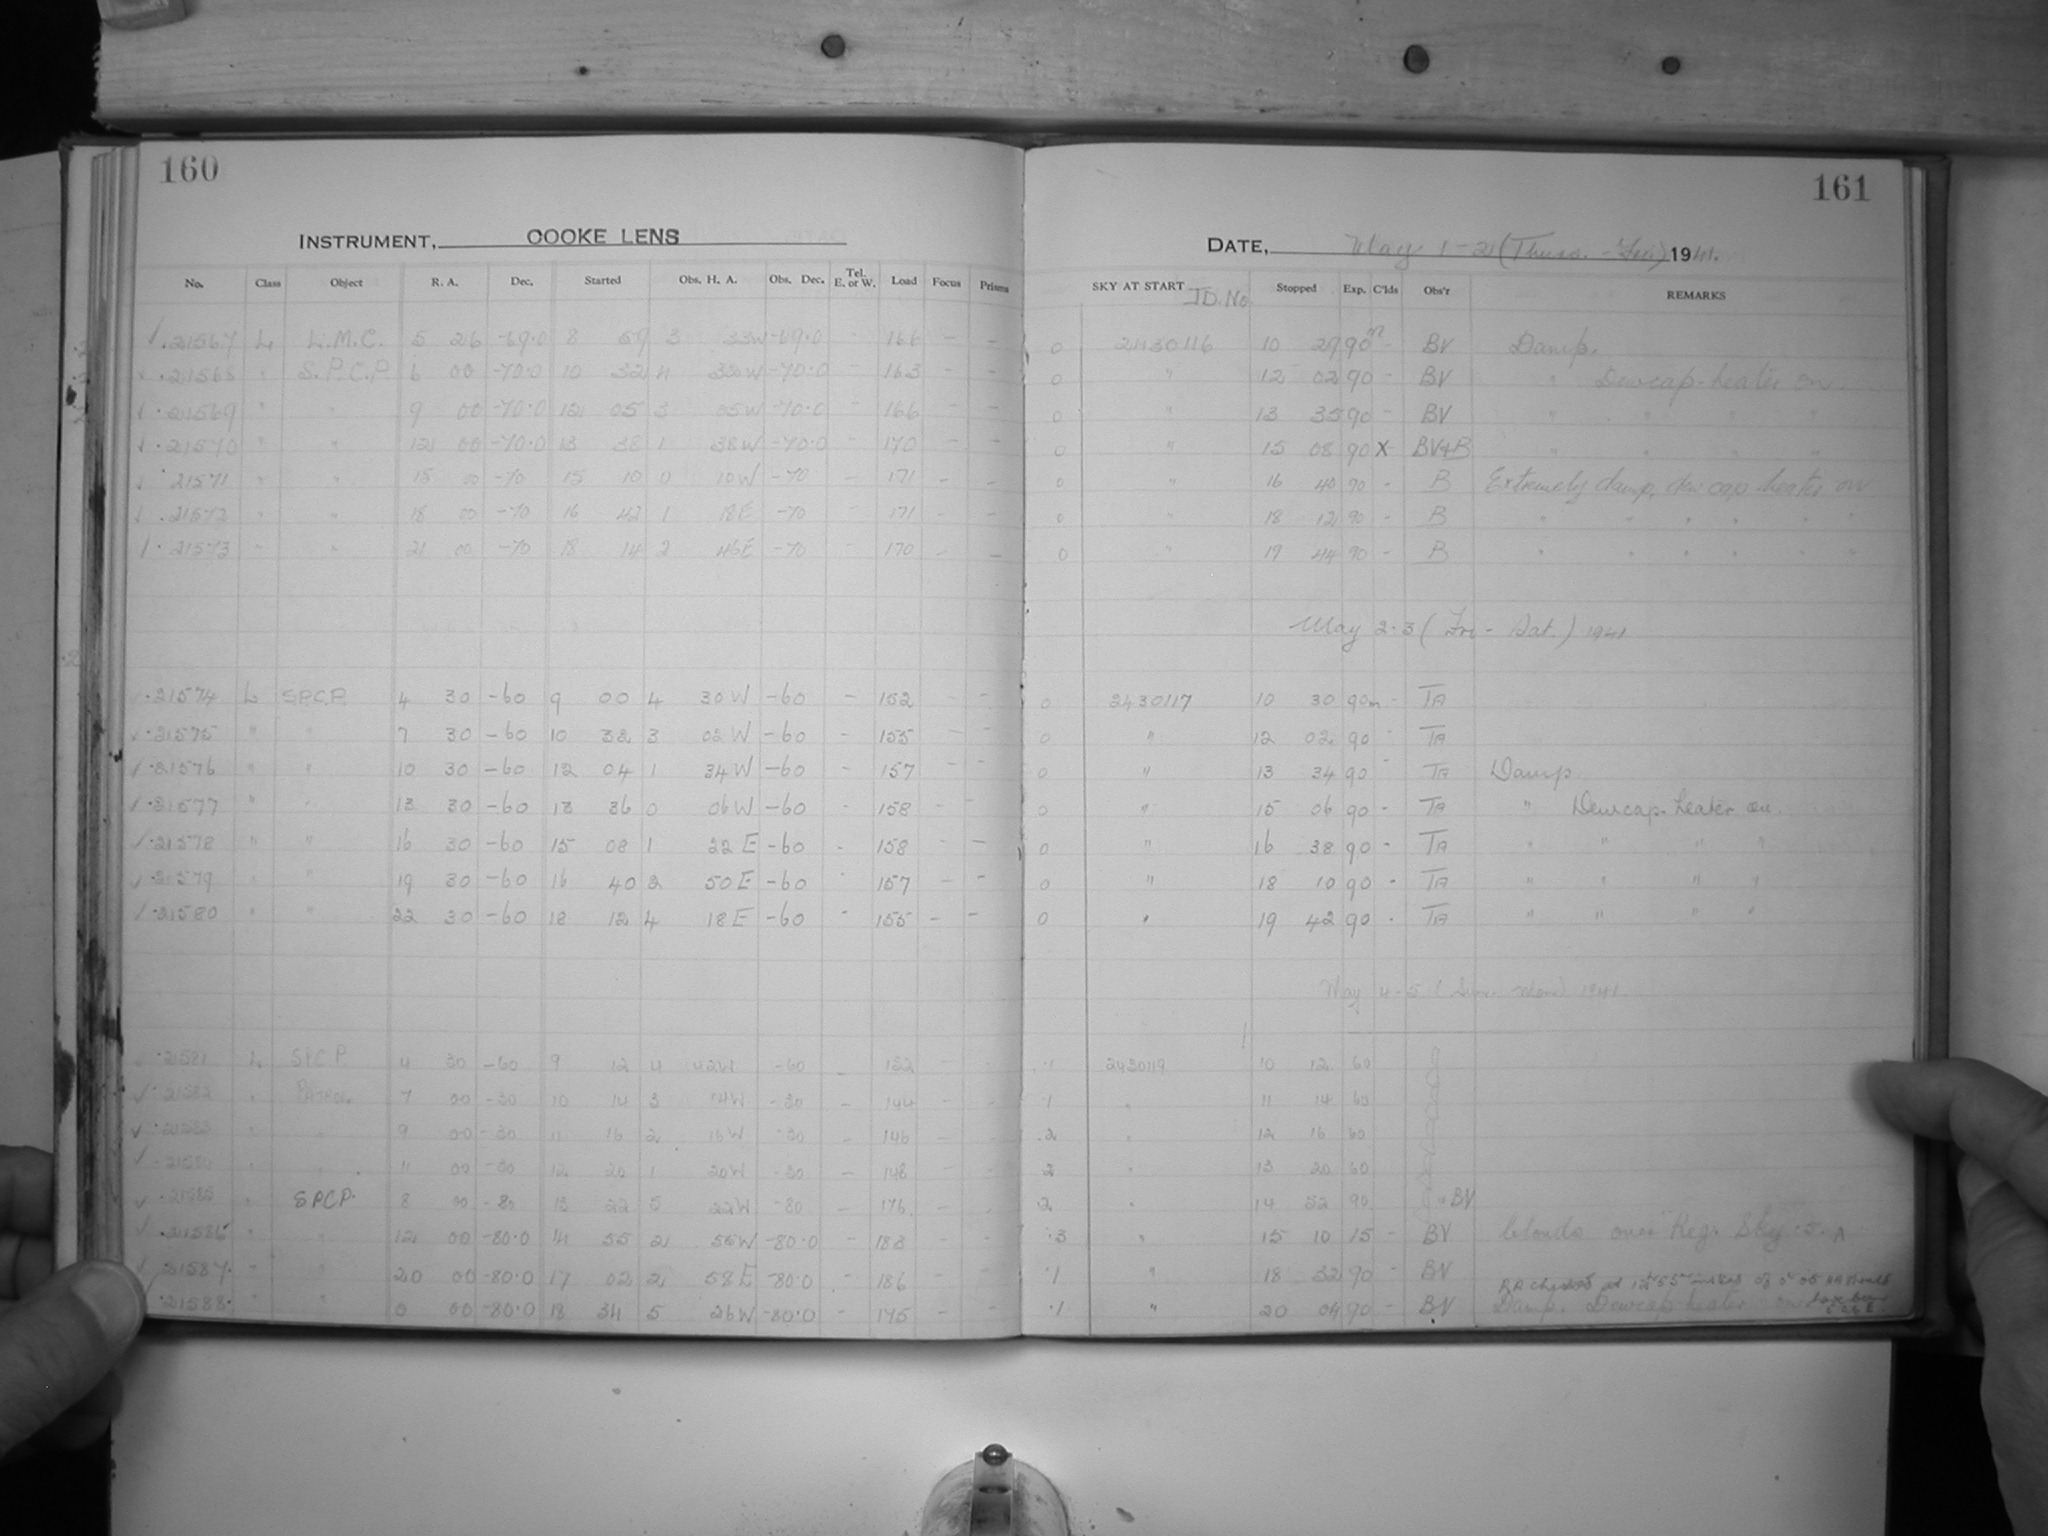 160
INSTRUMENT, COOKE LENS
No. Class Object R. A. Dec. Started Obs. H. A. Obs. Dec. Tel. E. or W. Load Focus Prisms
√ .21567 L L.M.C. 5 26 -69.0 8 59 3 33W -69.0 - 166 - -
.21568 " S.P.C.P. 6 00 -70.0 10 32 4 W -70.0 - 163 - -
√ .21569 " " 9 00 -70.0 12 05 3 05W -70.0 - 166 - -
√ .21570 " " 12 00 -70.0 13 38 1 38W -70.0 - 170 - -
√ .21571 " " 15 00 -70 15 10 0 10W -70 - 171 - -
√ .21572 " " 18 00 -70 16 42 1 18E -70 - 171 - -
√ .21573 " " 21 00 -70 18 14 2 46E -70 - 170 - -
√ .21574 L S.P.C.P. 4 30 -60 9 00 4 30W -60 - 152 - -
√ .21575 " " 7 30 -60 10 32 3 02W -60 - 155 - -
√ .21576 " " 10 30 -60 12 04 1 34W -60 - 157 - -
√ .21577 " " 13 30 -60 13 36 0 06W -60 - 158 - -
√ .21578 " " 16 30 -60 15 08 1 22E -60 - 158 - -
√ .21579 " " 19 30 -60 16 40 2 50E -60 - 157 - -
√ .21580 " " 22 30 -60 18 12 4 18E -60 - 155 - -
√ .21581 L S.P.C.P. 4 30 -60 9 12 4 42W -60 - 152 - -
√ .21582 " PATROL 7 00 -30 10 14 3 14W -30 - 144 - -
√ .21583 " " 9 00 -30 11 16 2 16W -30 - 146 - -
√ .21584 " " 11 00 -30 12 20 1 20W -30 - 148 - -
√ .21585 " S.P.C.P. 8 00 -80 13 22 5 22W -80 - 176 - -
√ .21586 " " 12 00 -80.0 14 55 2 55W -80.0 - 183 - -
√ .21587 " " 20 00 -80.0 17 02 2 58E -80.0 - 186 - -
√ .21588 " " 0 00 -80.0 18 34 5 26W -80.0 - 175 - -
161
DATE, May 1-2 (Thurs. - Fri) 1941.
SKY AT START J.D. No. Stopped Exp. C'lds Obs'r REMARKS
0 2430116 10 29 90m - BV Damp.
0 " 12 02 90 - BV " Dewcap-heater on
0 " 13 35 90 - BV " " " " "
0 " 15 08 90 X BV+B " " " " "
0 " 16 40 90 - B Extremely damp, dew cap heater on
0 " 18 12 90 - B " " " " " "
0 " 19 44 90 - B " " " " " "
May 2-3 (Fri - Sat.) 1941
0 2430117 10 30 90m - TA
0 " 12 02 90 - TA
0 " 13 34 90 - TA Damp
0 " 15 06 90 - TA " Dewcap-heater on.
0 " 16 38 90 - TA " " " "
0 " 18 10 90 - TA " " " "
0 " 19 42 90 - TA " " " "
May 4-5 (Sun. - Mon) 1941
.1 2430119 10 12 60
.1 " 11 14 60
.2 " 12 16 60
.2 " 13 20 60
.2 " 14 52 90 BV
.3 " 15 10 15 - BV Clouds over Reg. Sky .5.
.1 " 18 32 90 - BV
.1 " 20 04 90 - BV Damp. Dewcap-heater on